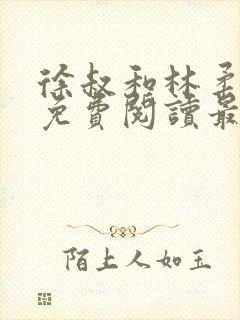 徐叔和林柔
免費閱讀最
陌上人如玉